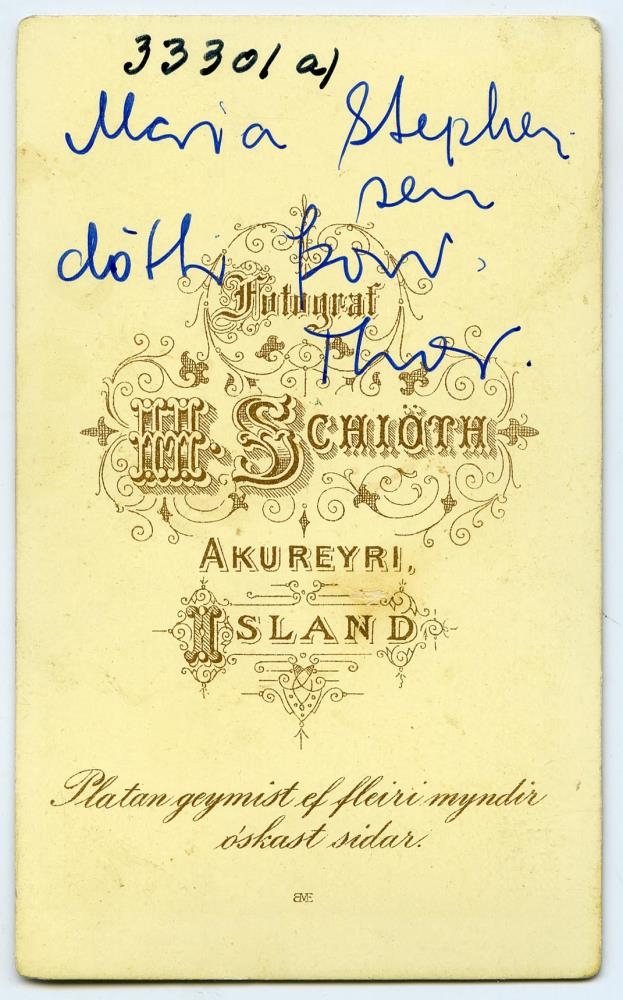 33301 a)
Maria Stephen
sen
dóttir
Fotograf
H. SCHIÖTH
AKUREYRI,
ISLAND
Platan geymist ef fleiri myndir
óskast sidar.